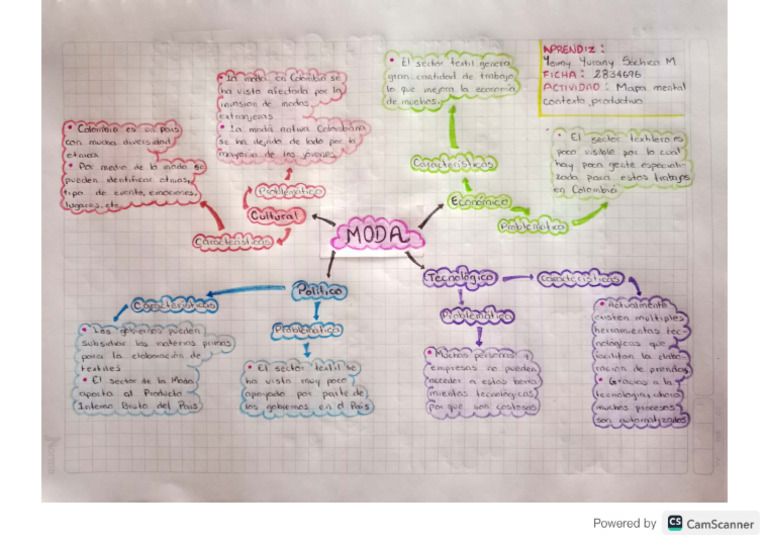 APRENDIZ :
Yeimy Yurany Sáchica M
FICHA : 2834696
ACTIVIDAD : Mapa mental
contexto productivo
MODA
Cultural
Problemático
• La moda en Colombia se
ha visto afectada por la
inmersión de modas
extranjeras
• La moda nativa Colombiana
se ha dejado de lado por la
mayoría de los jóvenes
Características
• Colombia es un país
con mucha diversidad
étnica
• Por medio de la moda se
pueden identificar etnias,
tipo de evento, emociones,
lugares, etc.
Económico
Características
• El sector textil genera
gran cantidad de trabajo
lo que mejora la economía
de muchos.
Problemático
• El sector textilero es
poco visible por lo cual
hay poca gente especiali-
zada para estos trabajos
en Colombia
Político
Características
• Los gobiernos pueden
subsidiar las materias primas
para la elaboración de
textiles
• El sector de la Moda
aporta al Producto
Interno Bruto del País
Problemático
• El sector textil se
ha visto muy poco
apoyado por parte de
los gobiernos en el País
Tecnológico
Características
• Actualmente
existen múltiples
herramientas tec-
nológicas que
facilitan la elabo-
ración de prendas
• Gracias a la
tecnología, ahora
muchos procesos
son automatizados
Problemático
• Muchas personas y
empresas no pueden
acceder a estas herra
mientas tecnológicas
por que son costosas
Powered by CS CamScanner